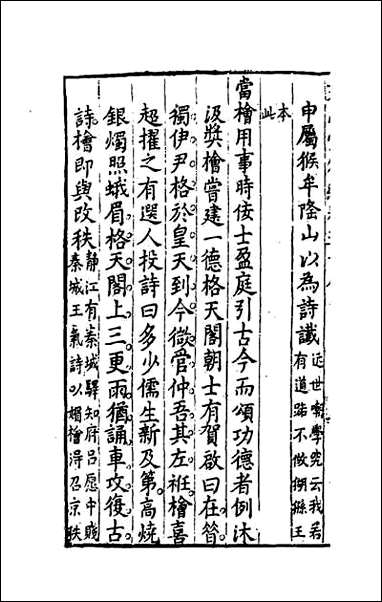 申屬猴牟隆山以為詩讖近世嘲學究云我若有道路不做猢猻王
本此
當檜用事時佞士盈庭引古今而頌功德者例沐
汲奬檜嘗建一德格天閣朝士有賀啟曰在昔
獨伊尹格於皇天到今微管仲吾其左衽檜喜
超擢之有選人投詩曰多少儒生新及第高燒
銀燭照蛾眉格天閣上三更雨猶誦車攻復古
詩檜即與改秩靜江有秦城驛知府呂愿中賦秦城王氣詩以媚檜得召京秩